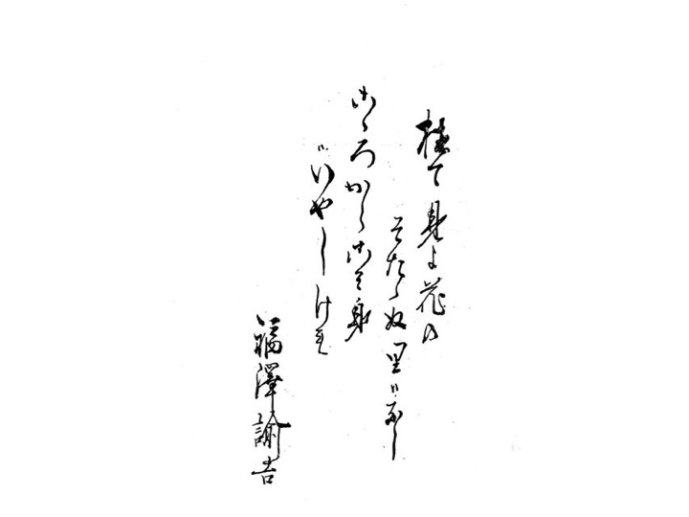 植て見よ花の
そたゝぬ里ハなし
こゝろからこそ身
ハいやしけれ
福澤諭吉